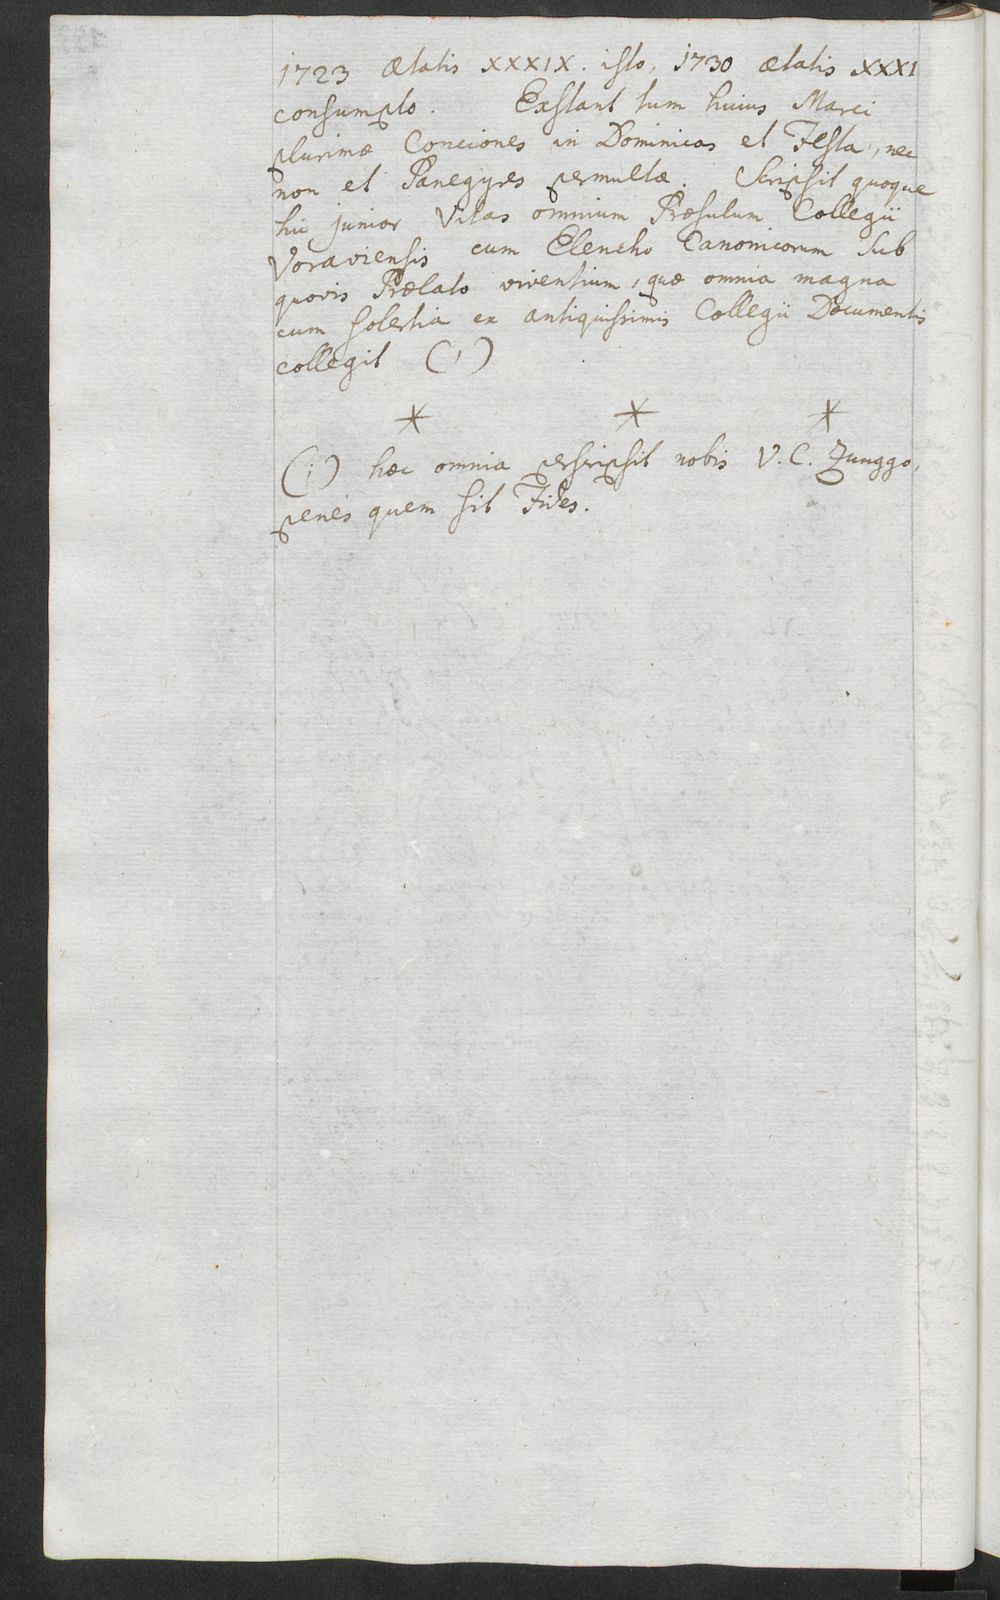 1723 ætatis XXXIX. isto, 1730 ætatis XXXI
consumpto. Exstant tum huius Marci
plurimæ Conciones in Dominicas et Festa, nec
non et Panegyres permultæ. Scripsit quoque
hic junior Vitas omnium Præsulum Collegii
Voraviensis cum Elencho Canonicorum sub
quovis Prælato viventium, quæ omnia magna
cum solertia ex antiquissimis Collegii Documentis
collegit (1)
* * *
(1) hæc omnia perscripsit nobis V. C. Zunggo,
penes quem sit Fides.